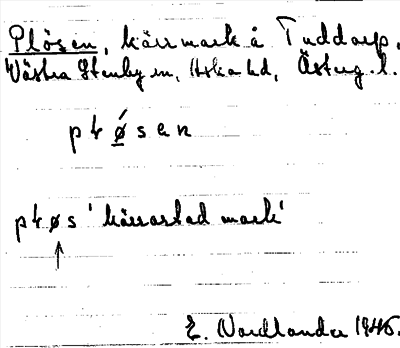 Plösen, kärrmark å Tuddorp,
Västra Stenby sn, Aska hd, Österg. l.
płǿsen
płøs 'kärrartad mark'
↑
E. Nordlander 1946.